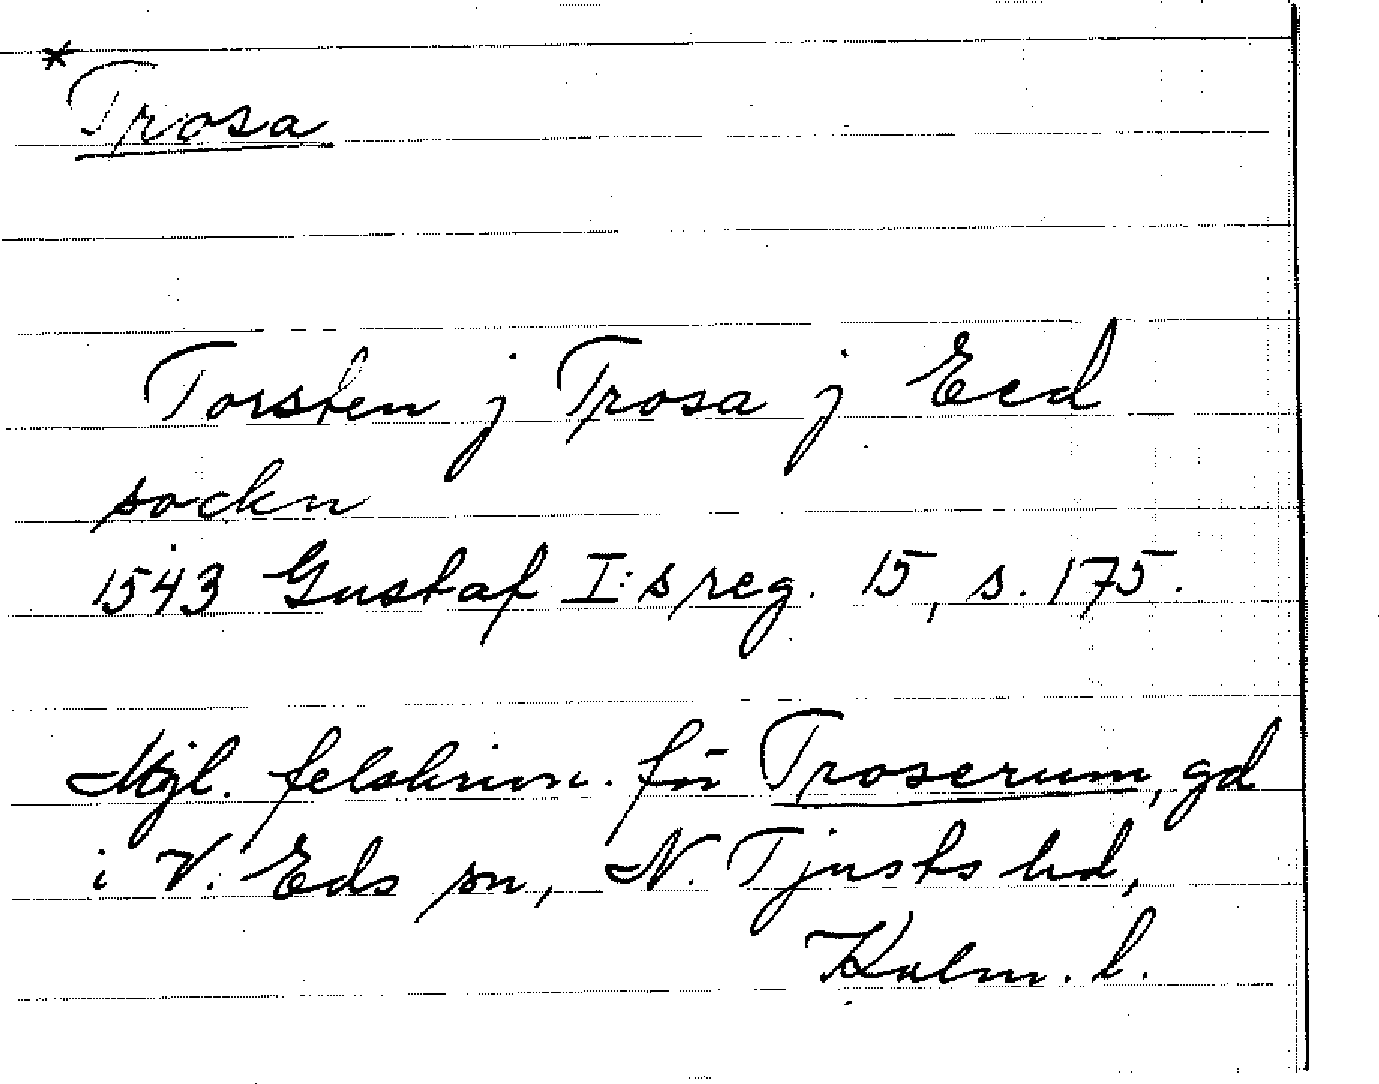 *
Trosa
Torsten j Trosa j Eed
sockn
1543 Gustaf I:s reg. 15, s. 175.
Mjl. felskrivn. för Troserum, gd
i V. Eds sn, N. Tjusts hd,
Kalm. l.